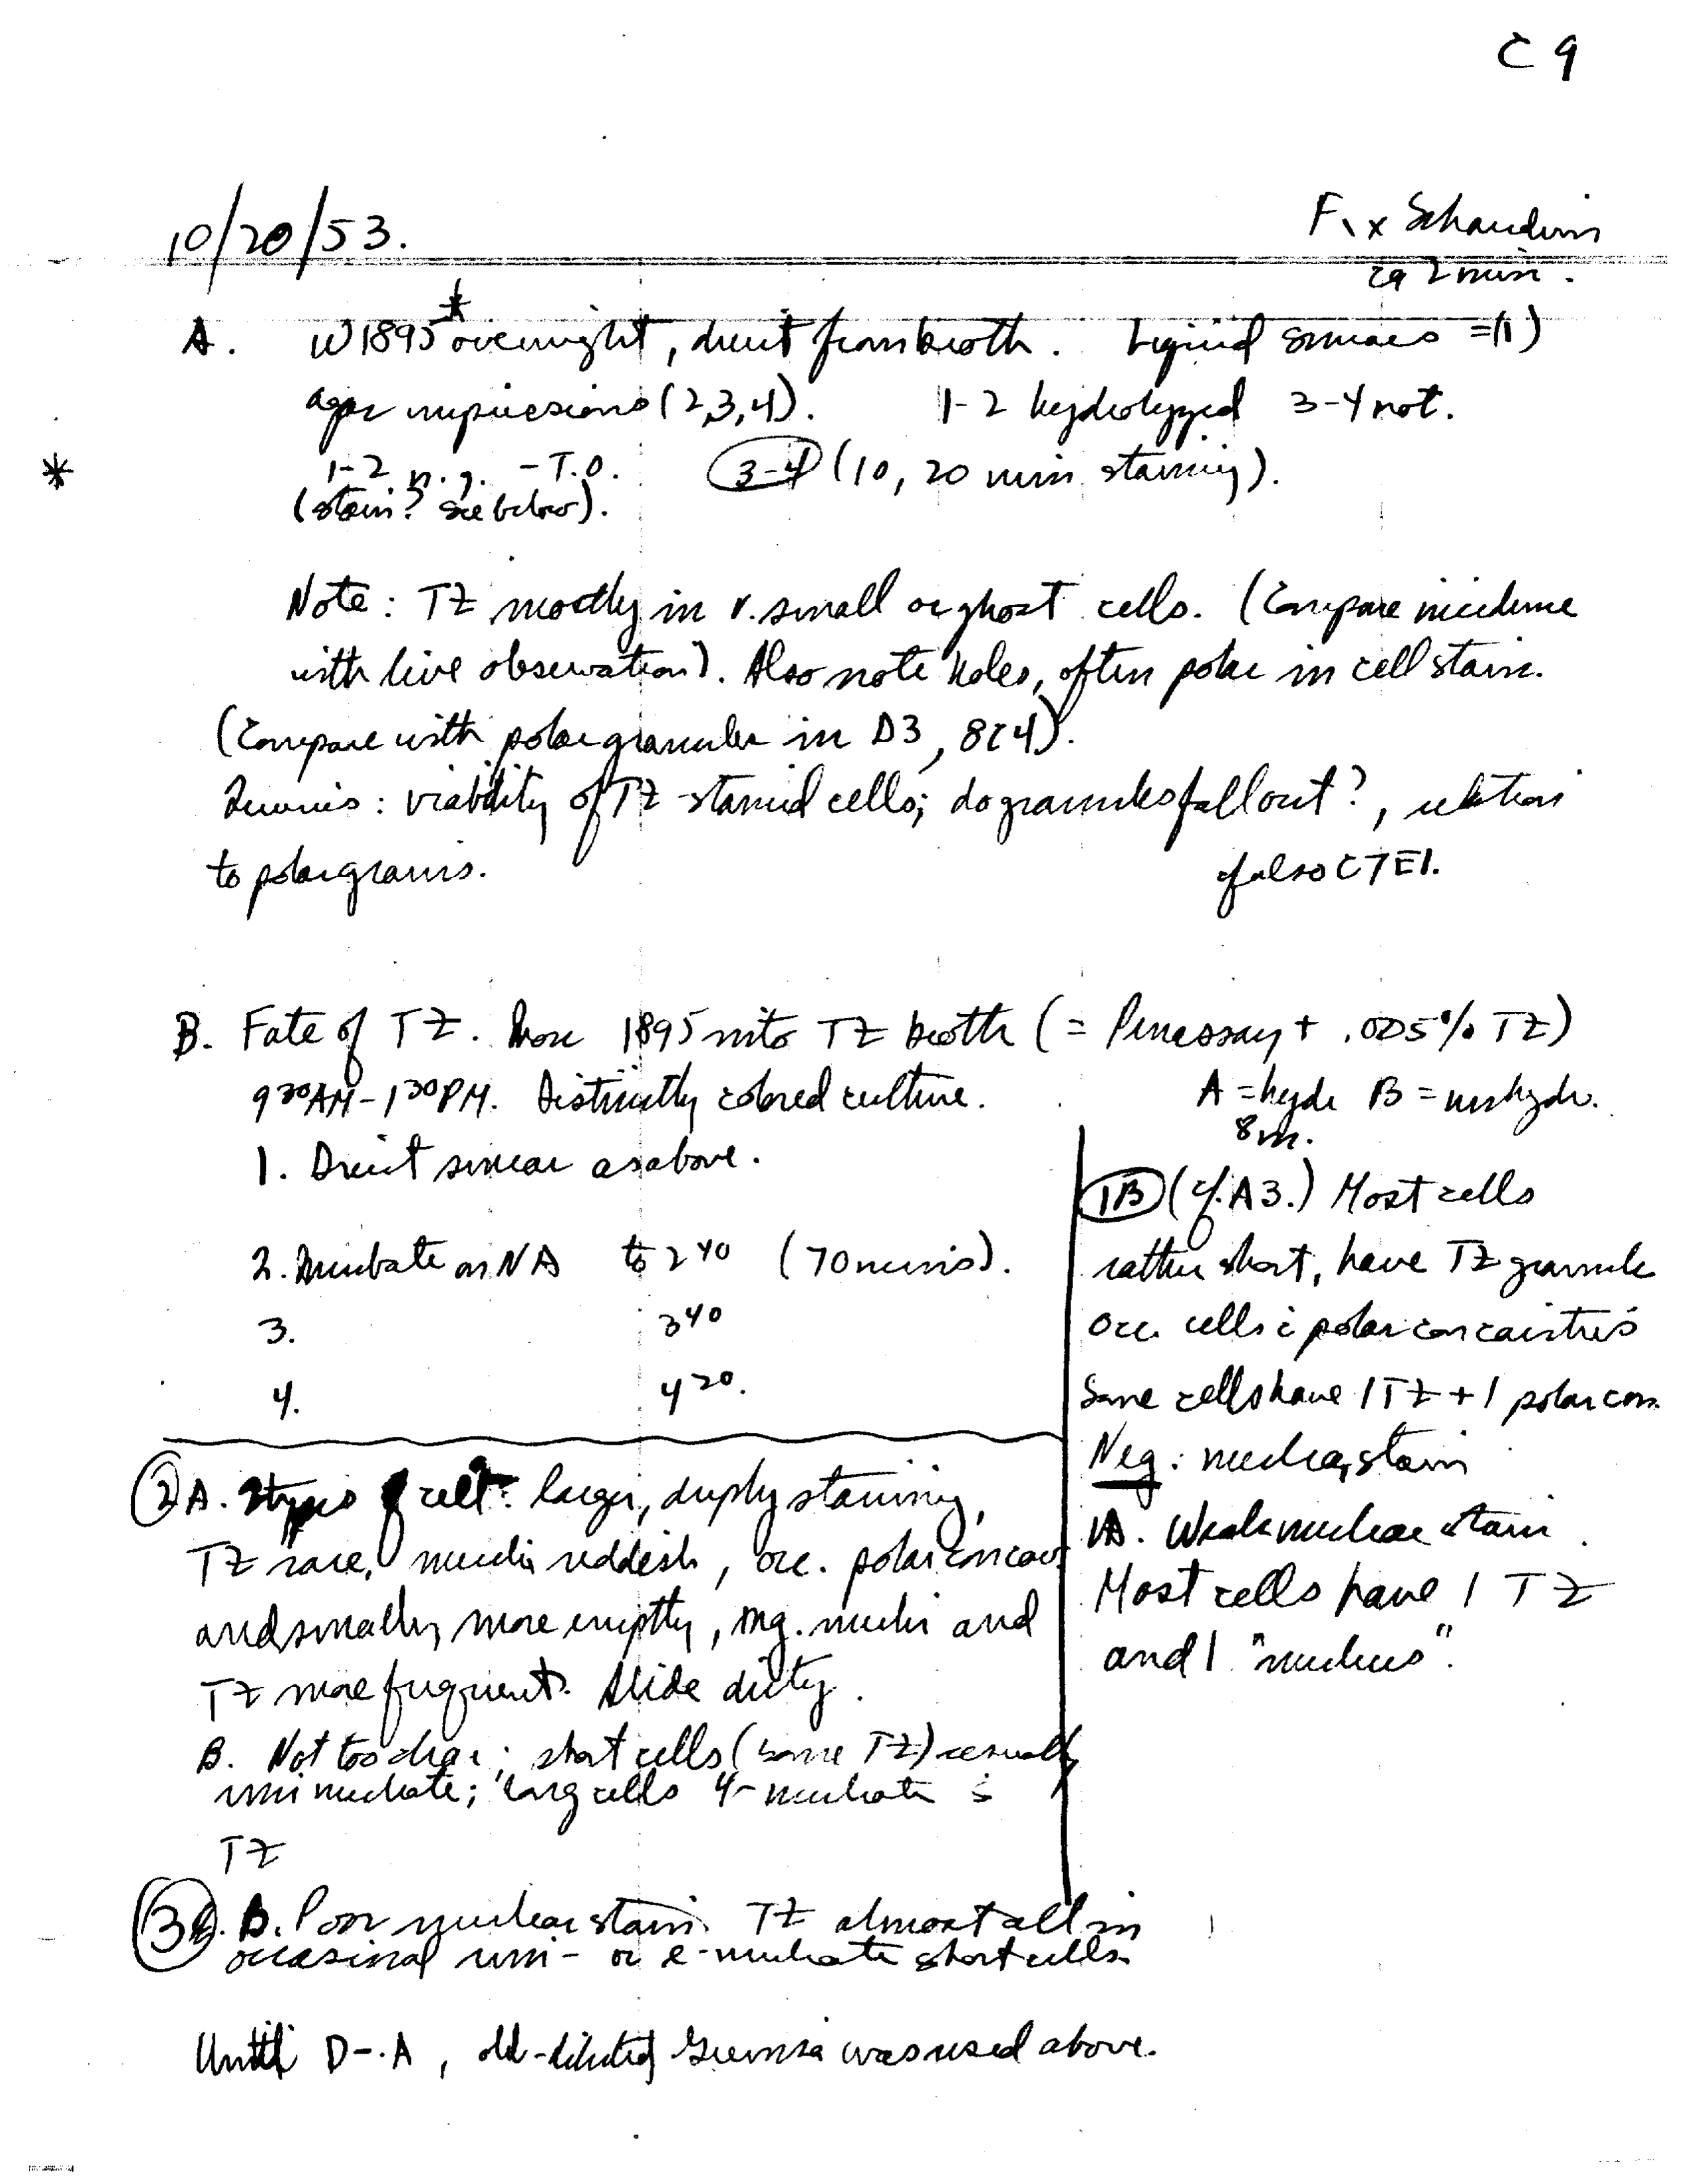 C 9
10/20/53.
Fix Schaudinn
ca 2 min.
A. W1895* overnight, direct from broth. Liquid smears = (1)
agar impressions (2,3,4). 1-2 hydrolyzed 3-4 not.
* 1-2 n.g. - T.O. 3-4 (10, 20 min staining).
(stain? see below).
Note: TZ mostly in v. small or ghost cells. (Compare incidence
with live observation). Also note holes, often polar in cell stain.
(Compare with polar granules in D3, 8(4).
: viability of TZ-stained cells; do granules fall out?, relation
to polar grans. cf also C7E1.
B. Fate of TZ. 1895 into TZ broth (= Penassay + .005% TZ)
9 30 AM - 1 30 PM. Distinctly colored culture. A = hydr B = unhydr.
8 m.
1. Direct smear as above.
2. Incubate on NA to 2 40 (70 mins).
3. 3 40
4. 4 20.
1B (cf. A3.) Most cells
rather short, have TZ granule
Occ. cells c̄ polar concavities
Some cells have 1 TZ + 1 polar conc.
Neg. nuclear stain
1A. Weak nuclear stain.
Most cells have 1 TZ
and 1 "nucleus".
2 A. 2 types of cell: larger, deeply staining,
TZ rare, nuclei reddish, occ. polar concav.
and smaller, more empty, mg. nuclei and
TZ more frequent. Slide dirty.
B. Not too clear; short cells (some TZ) usually
uninucleate; long cells 4-nucleate s̄
TZ
3 B. Poor nuclear stain. TZ almost all in
occasional uni- or 2-nucleate short cells.
Until D-.A, old-diluted Giemsa was used above.